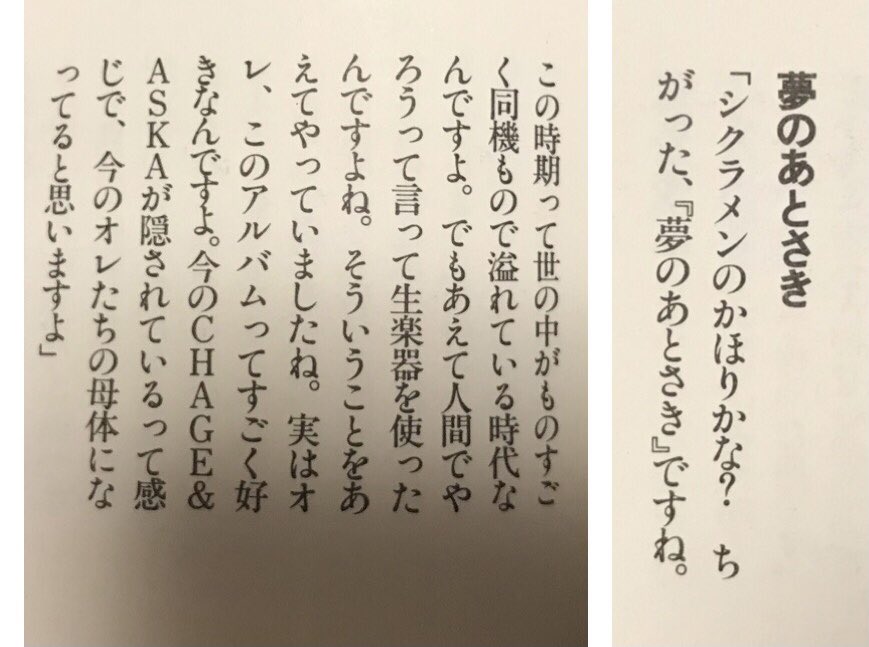 夢のあとさき
「シクラメンのかほりかな？　ち
がった、『夢のあとさき』ですね。
この時期って世の中がものすご
く同機もので溢れている時代な
んですよ。でもあえて人間でや
ろうって言って生楽器を使った
んですよね。そういうことをあ
えてやっていましたね。実はオ
レ、このアルバムってすごく好
きなんですよ。今のCHAGE&
ASKAが隠されているって感
じで、今のオレたちの母体にな
ってると思いますよ」